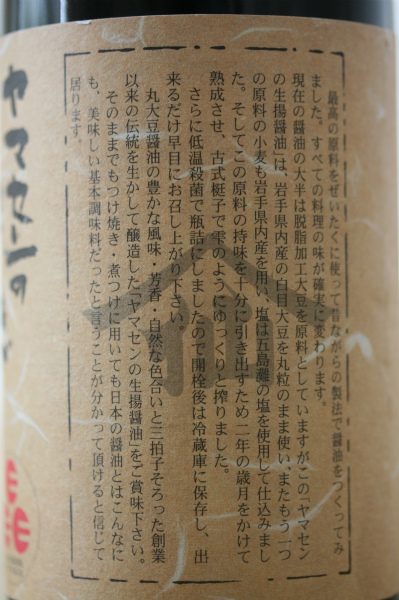 最高の原料をぜいたくに使って昔ながらの製法で醤油をつくってみ
ました。すべての料理の味が確実に変わります。
現在の醤油の大半は脱脂加工大豆を原料としていますがこの「ヤマセン
の生揚醤油」は、岩手県内産の白目大豆を丸粒のまま使い、またもう一つ
の原料の小麦も岩手県内産を用い、塩は五島灘の塩を使用して仕込みまし
た。そしてこの原料の持味を十分に引き出すため二年の歳月をかけて
熟成させ、古式梃子で雫のようにゆっくりと搾りました。
さらに低温殺菌で瓶詰にしましたので開栓後は冷蔵庫に保存し、出
来るだけ早目にお召し上がり下さい。
丸大豆醤油の豊かな風味・芳香・自然な色合いと三拍子そろった創業
以来の伝統を生かして醸造した「ヤマセンの生揚醤油」をご賞味下さい。
そのままでもつけ焼き・煮つけに用いても日本の醤油とはこんなに
も、美味しい基本調味料だったと言うことが分かって頂けると信じて
居ります。
ヤマセンの